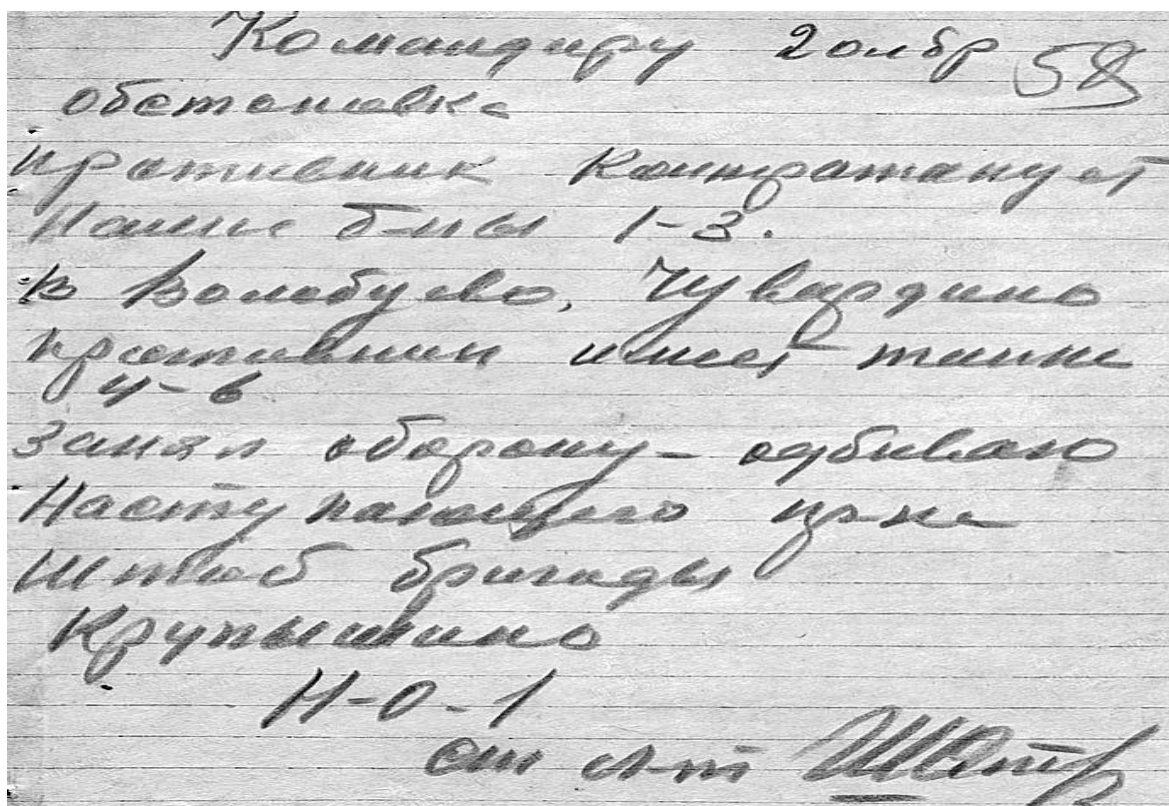 Командиру 2 олбр 58
обстановка
противник контратакует
Наши б-ны 1-3.
в Волобуево, Чувардино
противник имеет танки
4-6
занял оборону - одбиваю
Наступающего пр-ка
Штаб бригады
Крупышино
Н-О-1
ст л-т